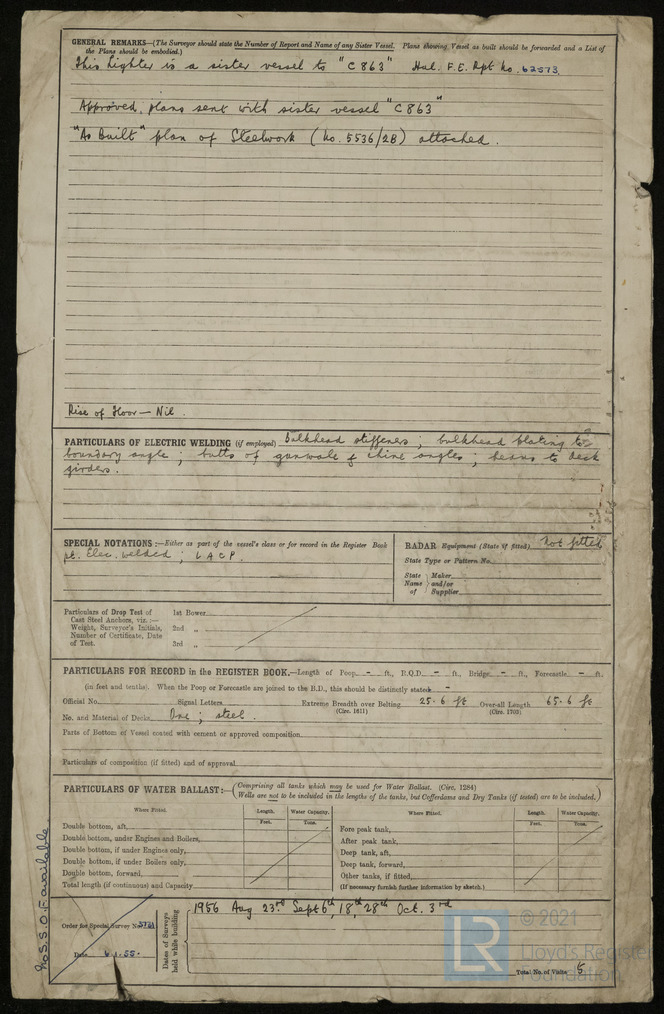 GENERAL REMARKS—(The Surveyor should state the Number of Report and Name of any Sister Vessel. Plans showing Vessel as built should be forwarded and a List of
the Plans should be embodied.)
This Lighter is a sister vessel to "C 863" Hul. F.E. Rpt No. 62573.
Approved, plans sent with sister vessel "C 863"
"As Built" plan of Steelwork (No. 5536/2B) attached.
Rise of Floor — Nil.
PARTICULARS OF ELECTRIC WELDING (if employed) Bulkhead stiffeners; bulkhead plating to
boundary angle; butts of gunwale & chine angles; beams to deck
girders.
SPECIAL NOTATIONS:—Either as part of the vessel's class or for record in the Register Book
pt. Elec. welded; LACP.
RADAR Equipment (State if fitted) Not fitted
State Type or Pattern No.
State Name of } Maker and/or Supplier
Particulars of Drop Test of
Cast Steel Anchors, viz.:—
Weight, Surveyor's Initials,
Number of Certificate, Date
of Test.
1st Bower
2nd „
3rd „
PARTICULARS FOR RECORD in the REGISTER BOOK.—Length of Poop - ft., R.Q.D. - ft., Bridge - ft., Forecastle - ft.
(in feet and tenths). When the Poop or Forecastle are joined to the B.D., this should be distinctly stated -
Official No. Signal Letters Extreme Breadth over Belting 25.6 ft Over-all Length 65.6 ft
(Circ. 1611) (Circ. 1703)
No. and Material of Decks One; steel.
Parts of Bottom of Vessel coated with cement or approved composition
Particulars of composition (if fitted) and of approval
PARTICULARS OF WATER BALLAST:—(Comprising all tanks which may be used for Water Ballast. (Circ. 1284)
Wells are not to be included in the lengths of the tanks, but Cofferdams and Dry Tanks (if tested) are to be included.)
Where Fitted. Length. Water Capacity.
Feet. Tons.
Double bottom, aft,
Double bottom, under Engines and Boilers,
Double bottom, if under Engines only,
Double bottom, if under Boilers only,
Double bottom, forward,
Total length (if continuous) and Capacity
Where Fitted. Length. Water Capacity.
Feet. Tons.
Fore peak tank,
After peak tank,
Deep tank, aft,
Deep tank, forward,
Other tanks, if fitted,
(If necessary furnish further information by sketch.)
No S.S.O.F. available
Order for Special Survey No.
Date
Dates of Surveys
held while building
1956 Aug 23rd Sept 6th, 18th, 28th Oct. 3rd
Total No. of Visits 5
LR
© 2021
Lloyd's Register
Foundation